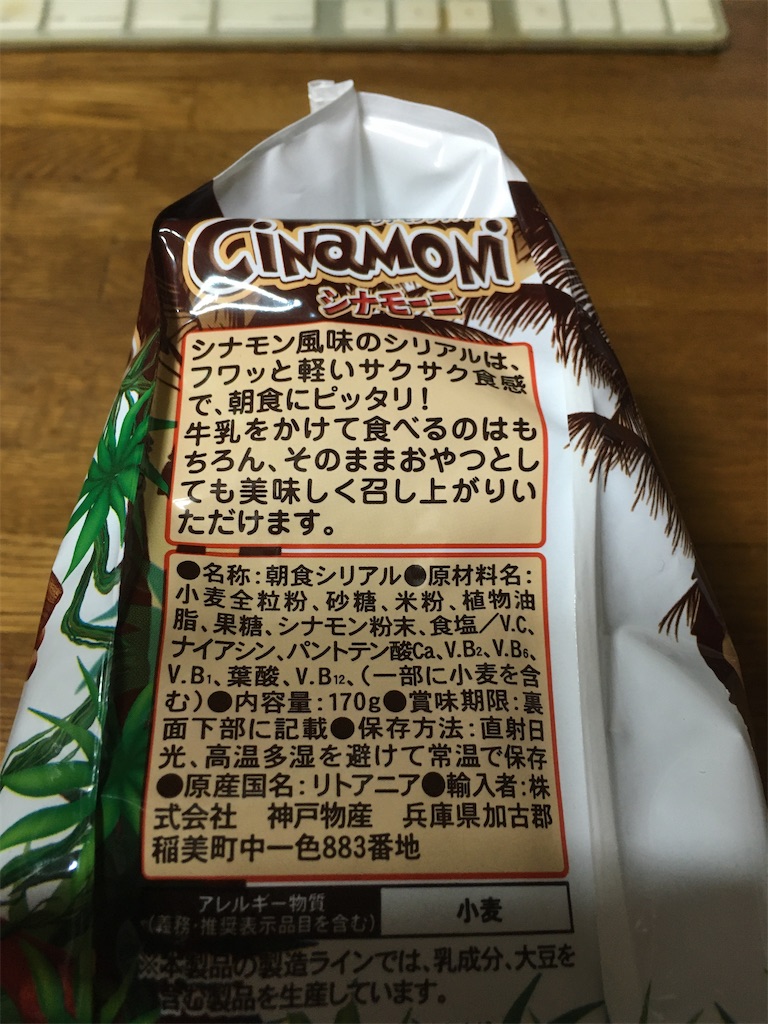 Cinamoni
シナモーニ
シナモン風味のシリアルは、
フワッと軽いサクサク食感
で、朝食にピッタリ!
牛乳をかけて食べるのはも
ちろん、そのままおやつとし
ても美味しく召し上がりい
ただけます。
●名称:朝食シリアル●原材料名:
小麦全粒粉、砂糖、米粉、植物油
脂、果糖、シナモン粉末、食塩/V.C、
ナイアシン、パントテン酸Ca、V.B₂、V.B₆、
V.B₁、葉酸、V.B₁₂、(一部に小麦を含
む)●内容量:170g●賞味期限:裏
面下部に記載●保存方法:直射日
光、高温多湿を避けて常温で保存
●原産国名:リトアニア●輸入者:株
式会社 神戸物産 兵庫県加古郡
稲美町中一色883番地
アレルギー物質
(義務・推奨表示品目を含む)
小麦
※本製品の製造ラインでは、乳成分、大豆を
含む製品を生産しています。